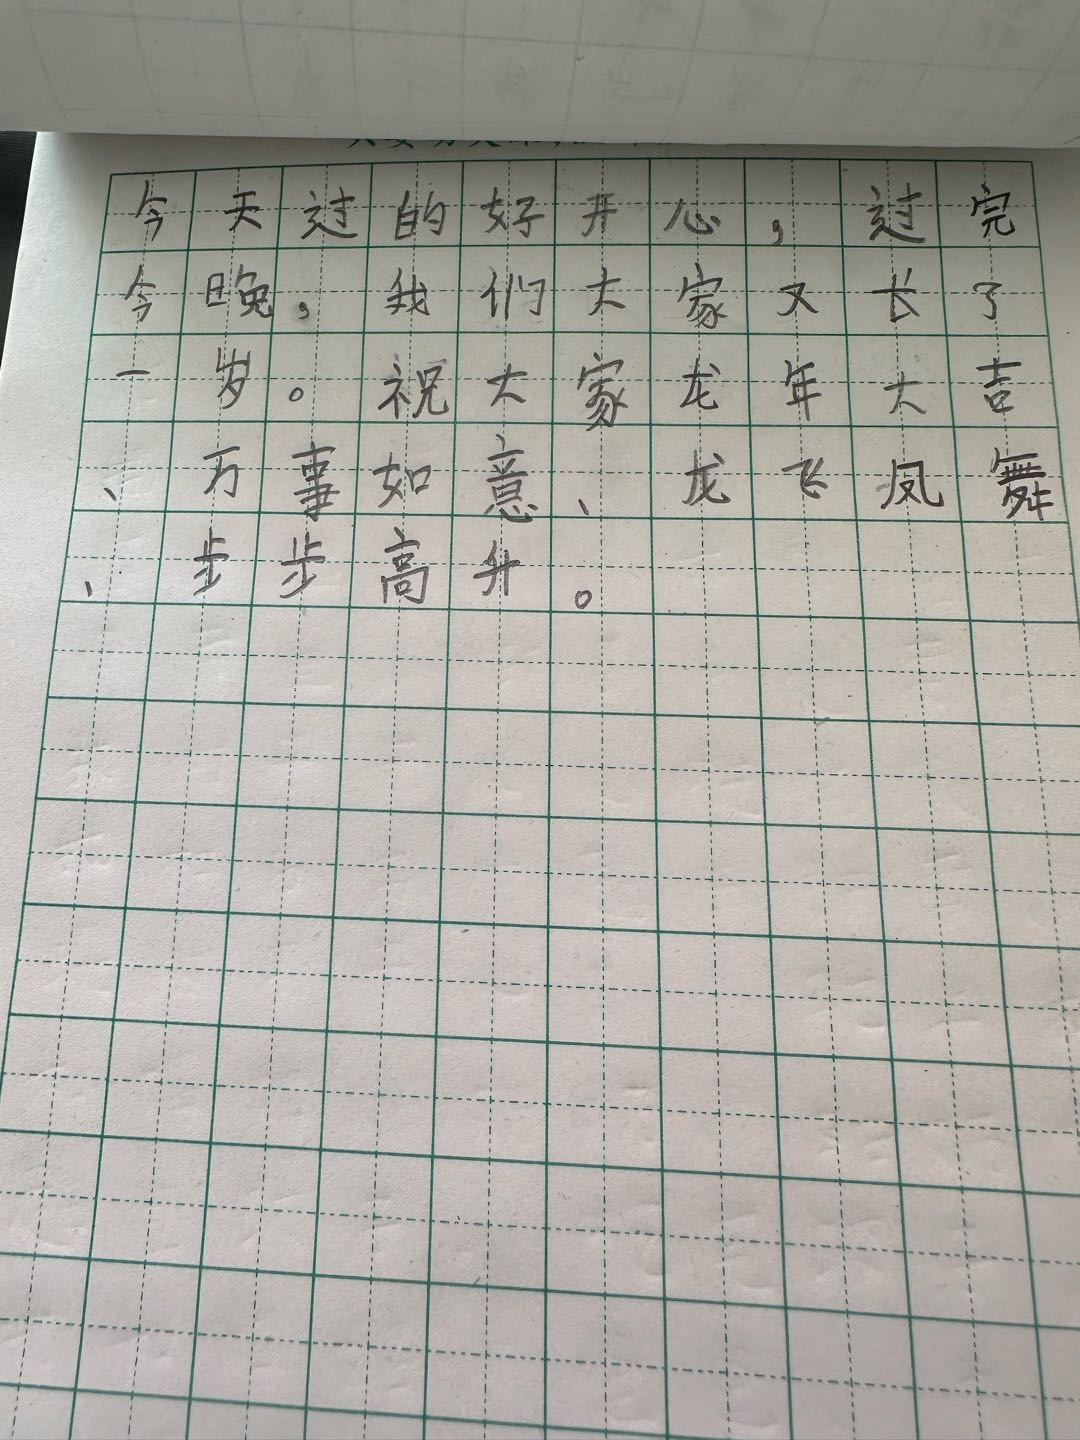 今天过的好开心，过完
今晚，我们大家又长了
一岁。祝大家龙年大吉
、万事如意、龙飞凤舞
、步步高升。